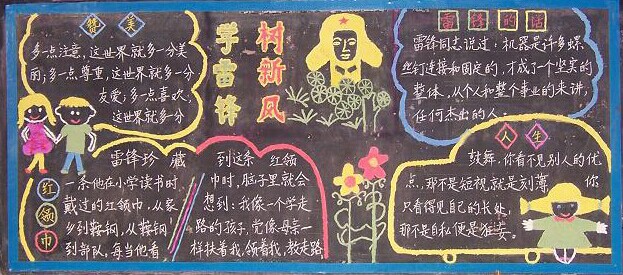 赞美
多点注意，这世界就多一分美
丽；多一点尊重，这世界就多一分
友爱；多一点喜欢，
这世界就多一分
学雷锋
树新风
雷锋的话
雷锋同志说过：机器是许多螺
丝钉连接和固定的，才成了一个坚实的
整体，从个人和整个事业的来讲，
任何杰出的人
红领巾
雷锋珍藏
一条他在小学读书时，
戴过的红领巾，从家
乡到鞍钢，从鞍钢
到部队，每当他看
到这条红领
巾时，脑子里就会
想到：我像一个学走
路的孩子，党像母亲一
样扶着我，领着我，教走路
人生
鼓舞，你看不见别人的优
点，那不是短视就是刻薄，你
只看得见自己的长处，
那不是自私便是狂妄。